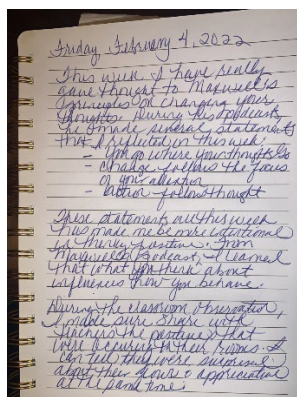 Friday, February 4, 2022
This week I have really
gave thought to Maxwell's
principles on changing your
thoughts. During his podcast,
he made several statements
that I reflected on this week.
- You go where your thoughts go
- Change follows the focus
of your attention
- Action follows thought
These statements all this week
has made me be more intentional
in thinking positive. From
Maxwell's Podcast, I learned
that what you think about
influences how you behave.
During the classroom observation,
I made sure share with
teachers the positives that
were occurring in their rooms. I
can tell they were surprised
about their glows & appreciative
at the same time.